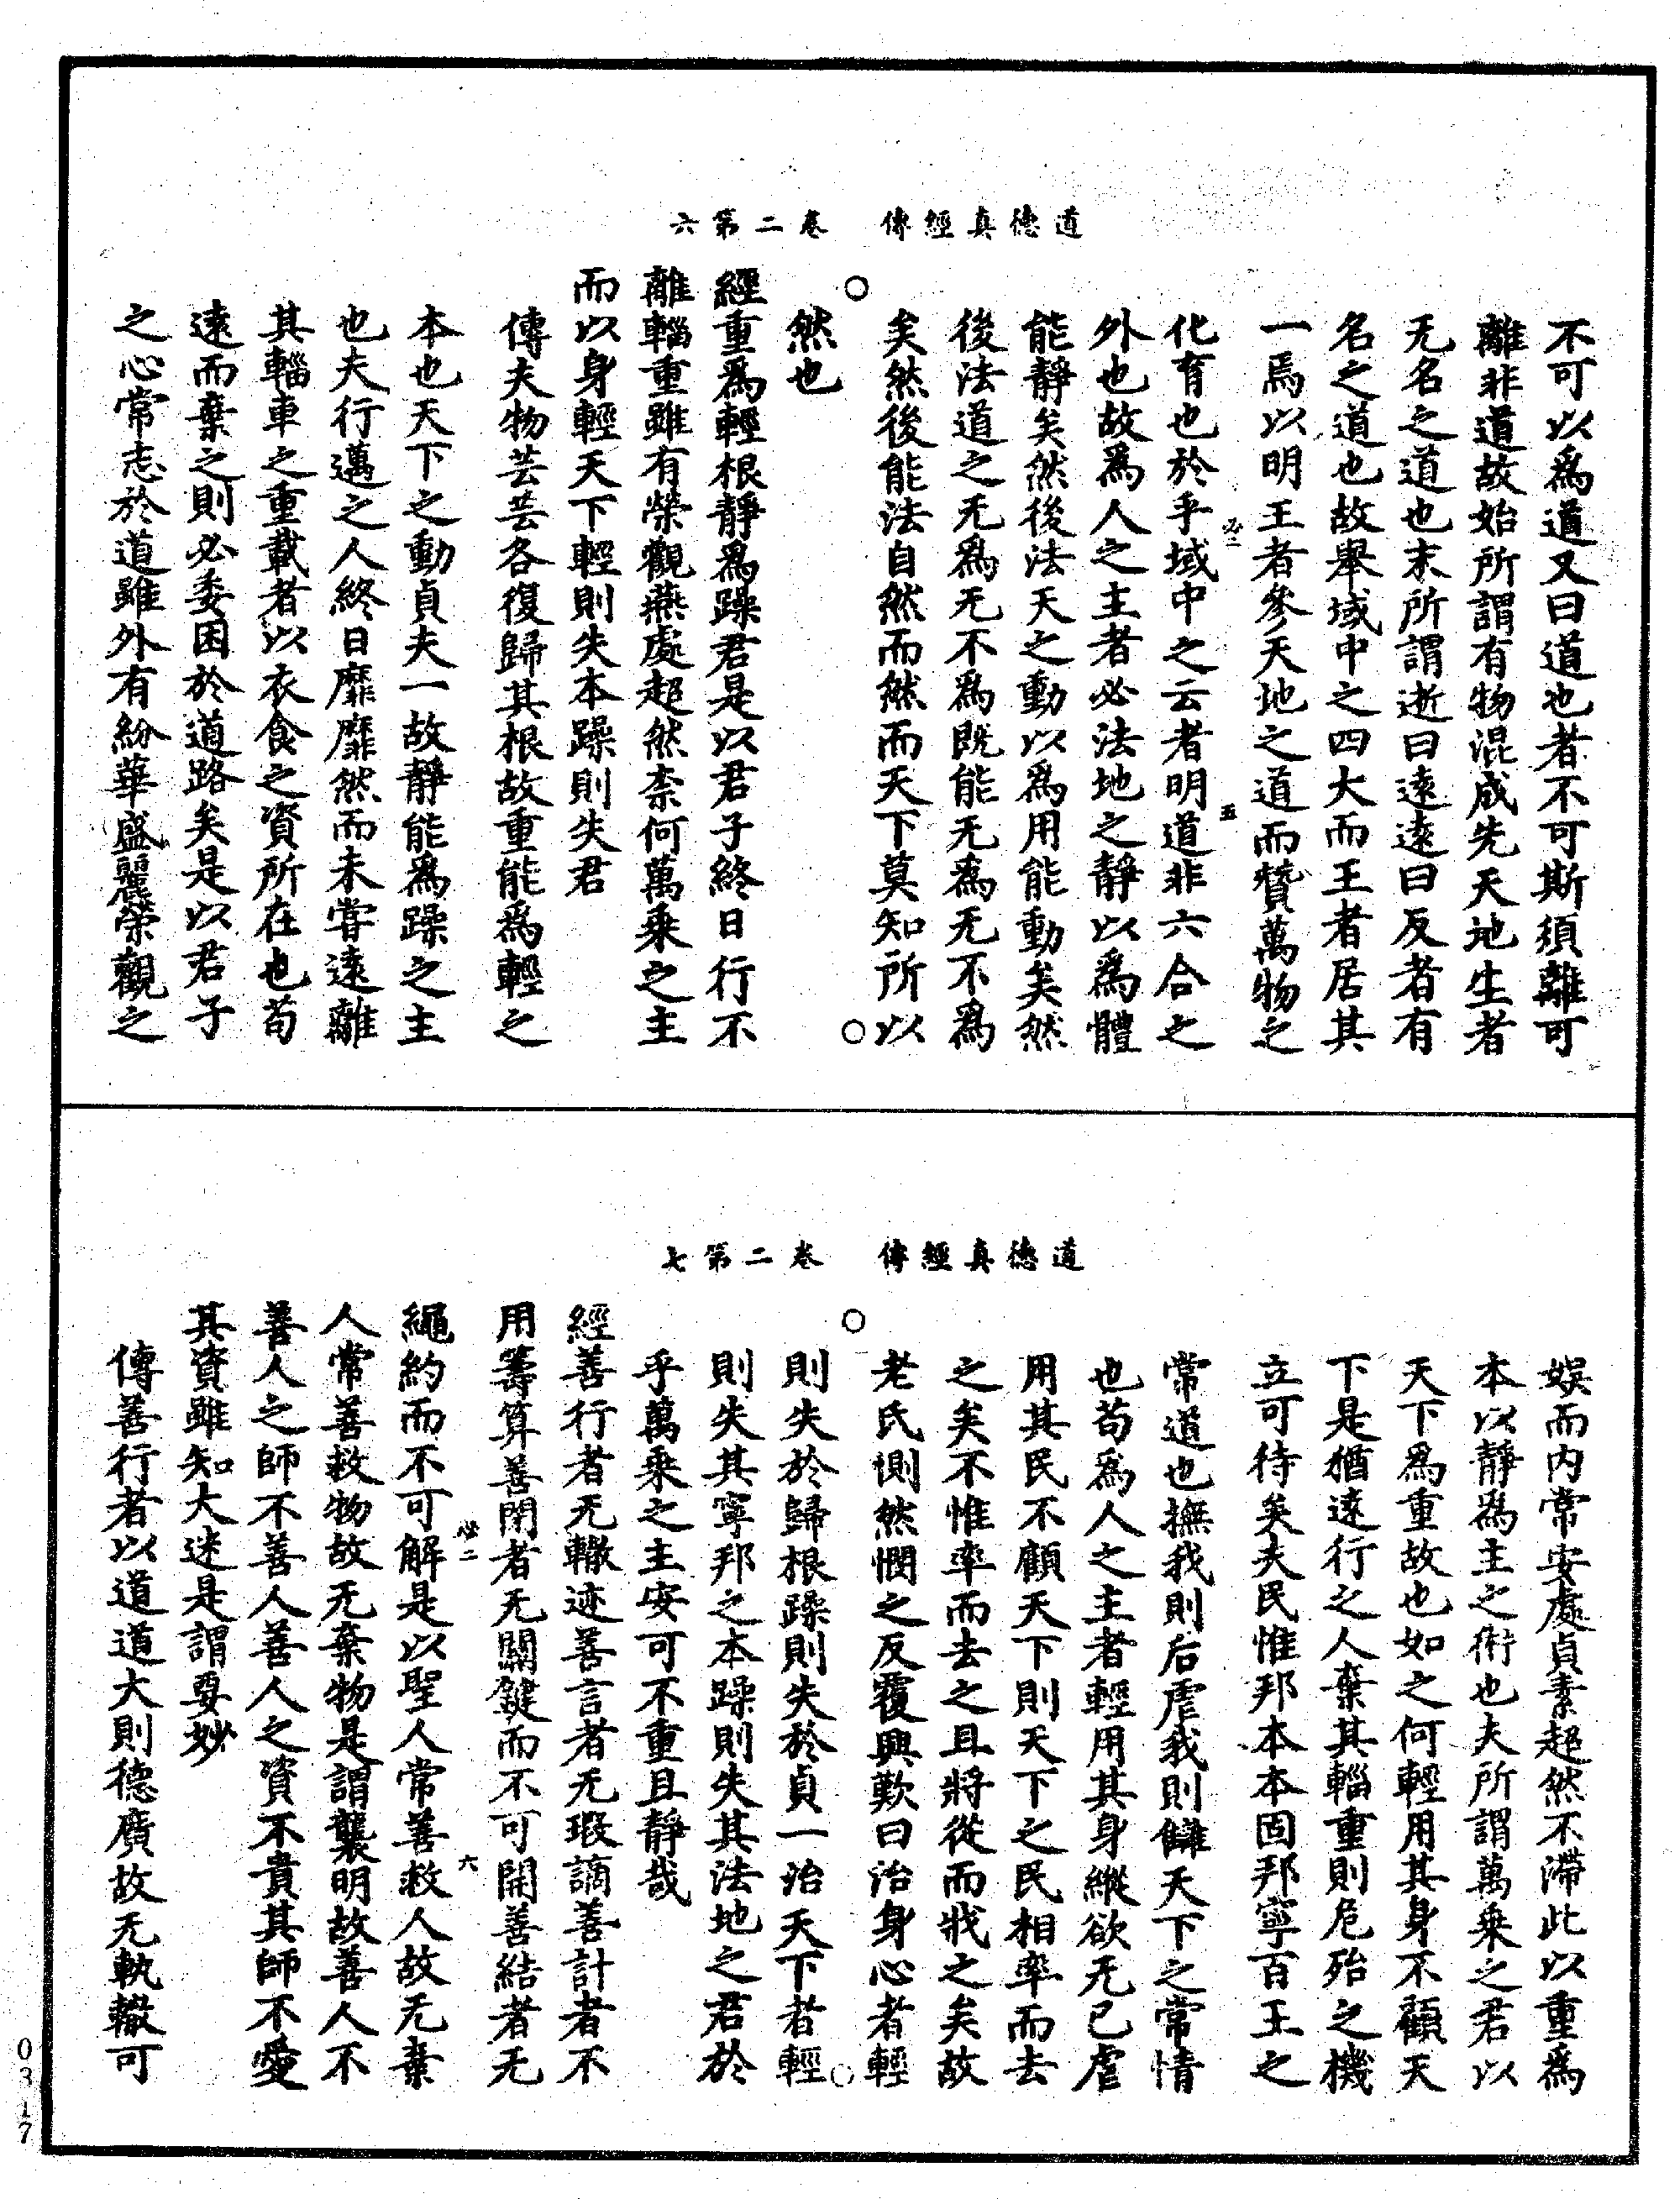 道德真經傳　卷二第六
不可以爲道又曰道也者不可斯須離可
離非道故始所謂有物混成先天地生者
无名之道也末所謂逝曰遠遠曰反者有
名之道也故舉域中之四大而王者居其
一焉以明王者參天地之道而贊萬物之
化育也於乎域中之云者明道非六合之
外也故爲人之主者必法地之靜以爲體
能靜矣然後法天之動以爲用能動矣然
後法道之无爲无不爲既能无爲无不爲
矣然後能法自然而然而天下莫知所以
然也
經重爲輕根靜爲躁君是以君子終日行不
離輜重雖有榮觀燕處超然柰何萬乘之主
而以身輕天下輕則失本躁則失君
傳夫物芸芸各復歸其根故重能爲輕之
本也天下之動貞夫一故靜能爲躁之主
也夫行邁之人終日靡靡然而未甞遠離
其輜車之重載者以衣食之資所在也苟
遠而棄之則必委困於道路矣是以君子
之心常志於道雖外有紛華盛麗榮觀之
道德真經傳　卷二第七
娛而内常安處貞素超然不滯此以重爲
本以靜爲主之術也夫所謂萬乘之君以
天下爲重故也如之何輕用其身不顧天
下是猶遠行之人棄其輜重則危殆之機
立可待矣夫民惟邦本本固邦寧百王之
常道也撫我則后虐我則讎天下之常情
也苟爲人之主者輕用其身縱欲无已虐
用其民不顧天下則天下之民相率而去
之矣不惟率而去之且將從而戕之矣故
老氏惻然憫之反覆興歎曰治身心者輕
則失於歸根躁則失於貞一治天下者輕
則失其寧邦之本躁則失其法地之君於
乎萬乘之主安可不重且靜哉
經善行者无轍迹善言者无瑕謫善計者不
用籌算善閇者无關鍵而不可開善結者无
繩約而不可解是以聖人常善救人故无棄
人常善救物故无棄物是謂襲明故善人不
善人之師不善人善人之資不貴其師不愛
其資雖知大迷是謂要妙
傳善行者以道道大則德廣故无軌轍可
必二
五
必二
六
0317